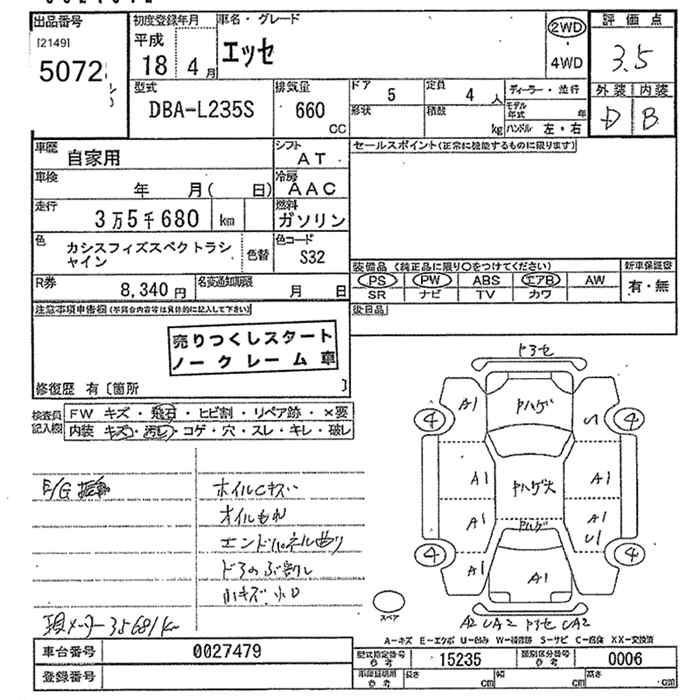 出品番号
[2149]
5072
初度登録年月
平成
18 4 月
車名・グレード
エッセ
2WD
4WD
評価点
3.5
外装 内装
D B
型式
DBA-L235S
排気量
660
CC
ドア 5
形状
定員 4 人
積数 kg
ディーラー・並行
モデル年式 年
ハンドル 左・右
車歴 自家用
シフト AT
セールスポイント(正常に機能するものに限ります)
車検 年 月( 日)
冷房 AAC
走行 3万5千680 km
燃料 ガソリン
色 カシスフィズスペクトラシャイン
色替
色コード S32
装備品(純正品に限り○をつけてください)
新車保証書
PS PW ABS エアB AW
有・無
SR ナビ TV カワ
R券 8,340 円
名変通知期限 月 日
注意事項申告欄
後日品
売りつくしスタート
ノークレーム車
修復歴 有〔箇所 〕
検査員記入欄
FW キズ・飛石・ヒビ割・リペア跡・×要
内装 キズ・汚レ・コゲ・穴・スレ・キレ・破レ
E/G
ホイルCキズ
オイルもれ
エンドパネル曲り
ドアのぶ割レ
小キズ 小凹
現メーター35681km
ドアセ
A1
ヤハゲ
U1
4 4
A1
ヤハゲ大
A1
A1
ヤハゲ
A1
U1
4 4
A1
A1
スペア
A2 UA2 ドアセ UA2
A-キズ E-エクボ U-凹み W-補修跡 S-サビ C-腐蝕 XX-交換済
車台番号 0027479
型式指定番号 参考 15235
類別区分番号 参考 0006
登録番号
車庫証明用 参考
長さ cm
幅 cm
高さ cm